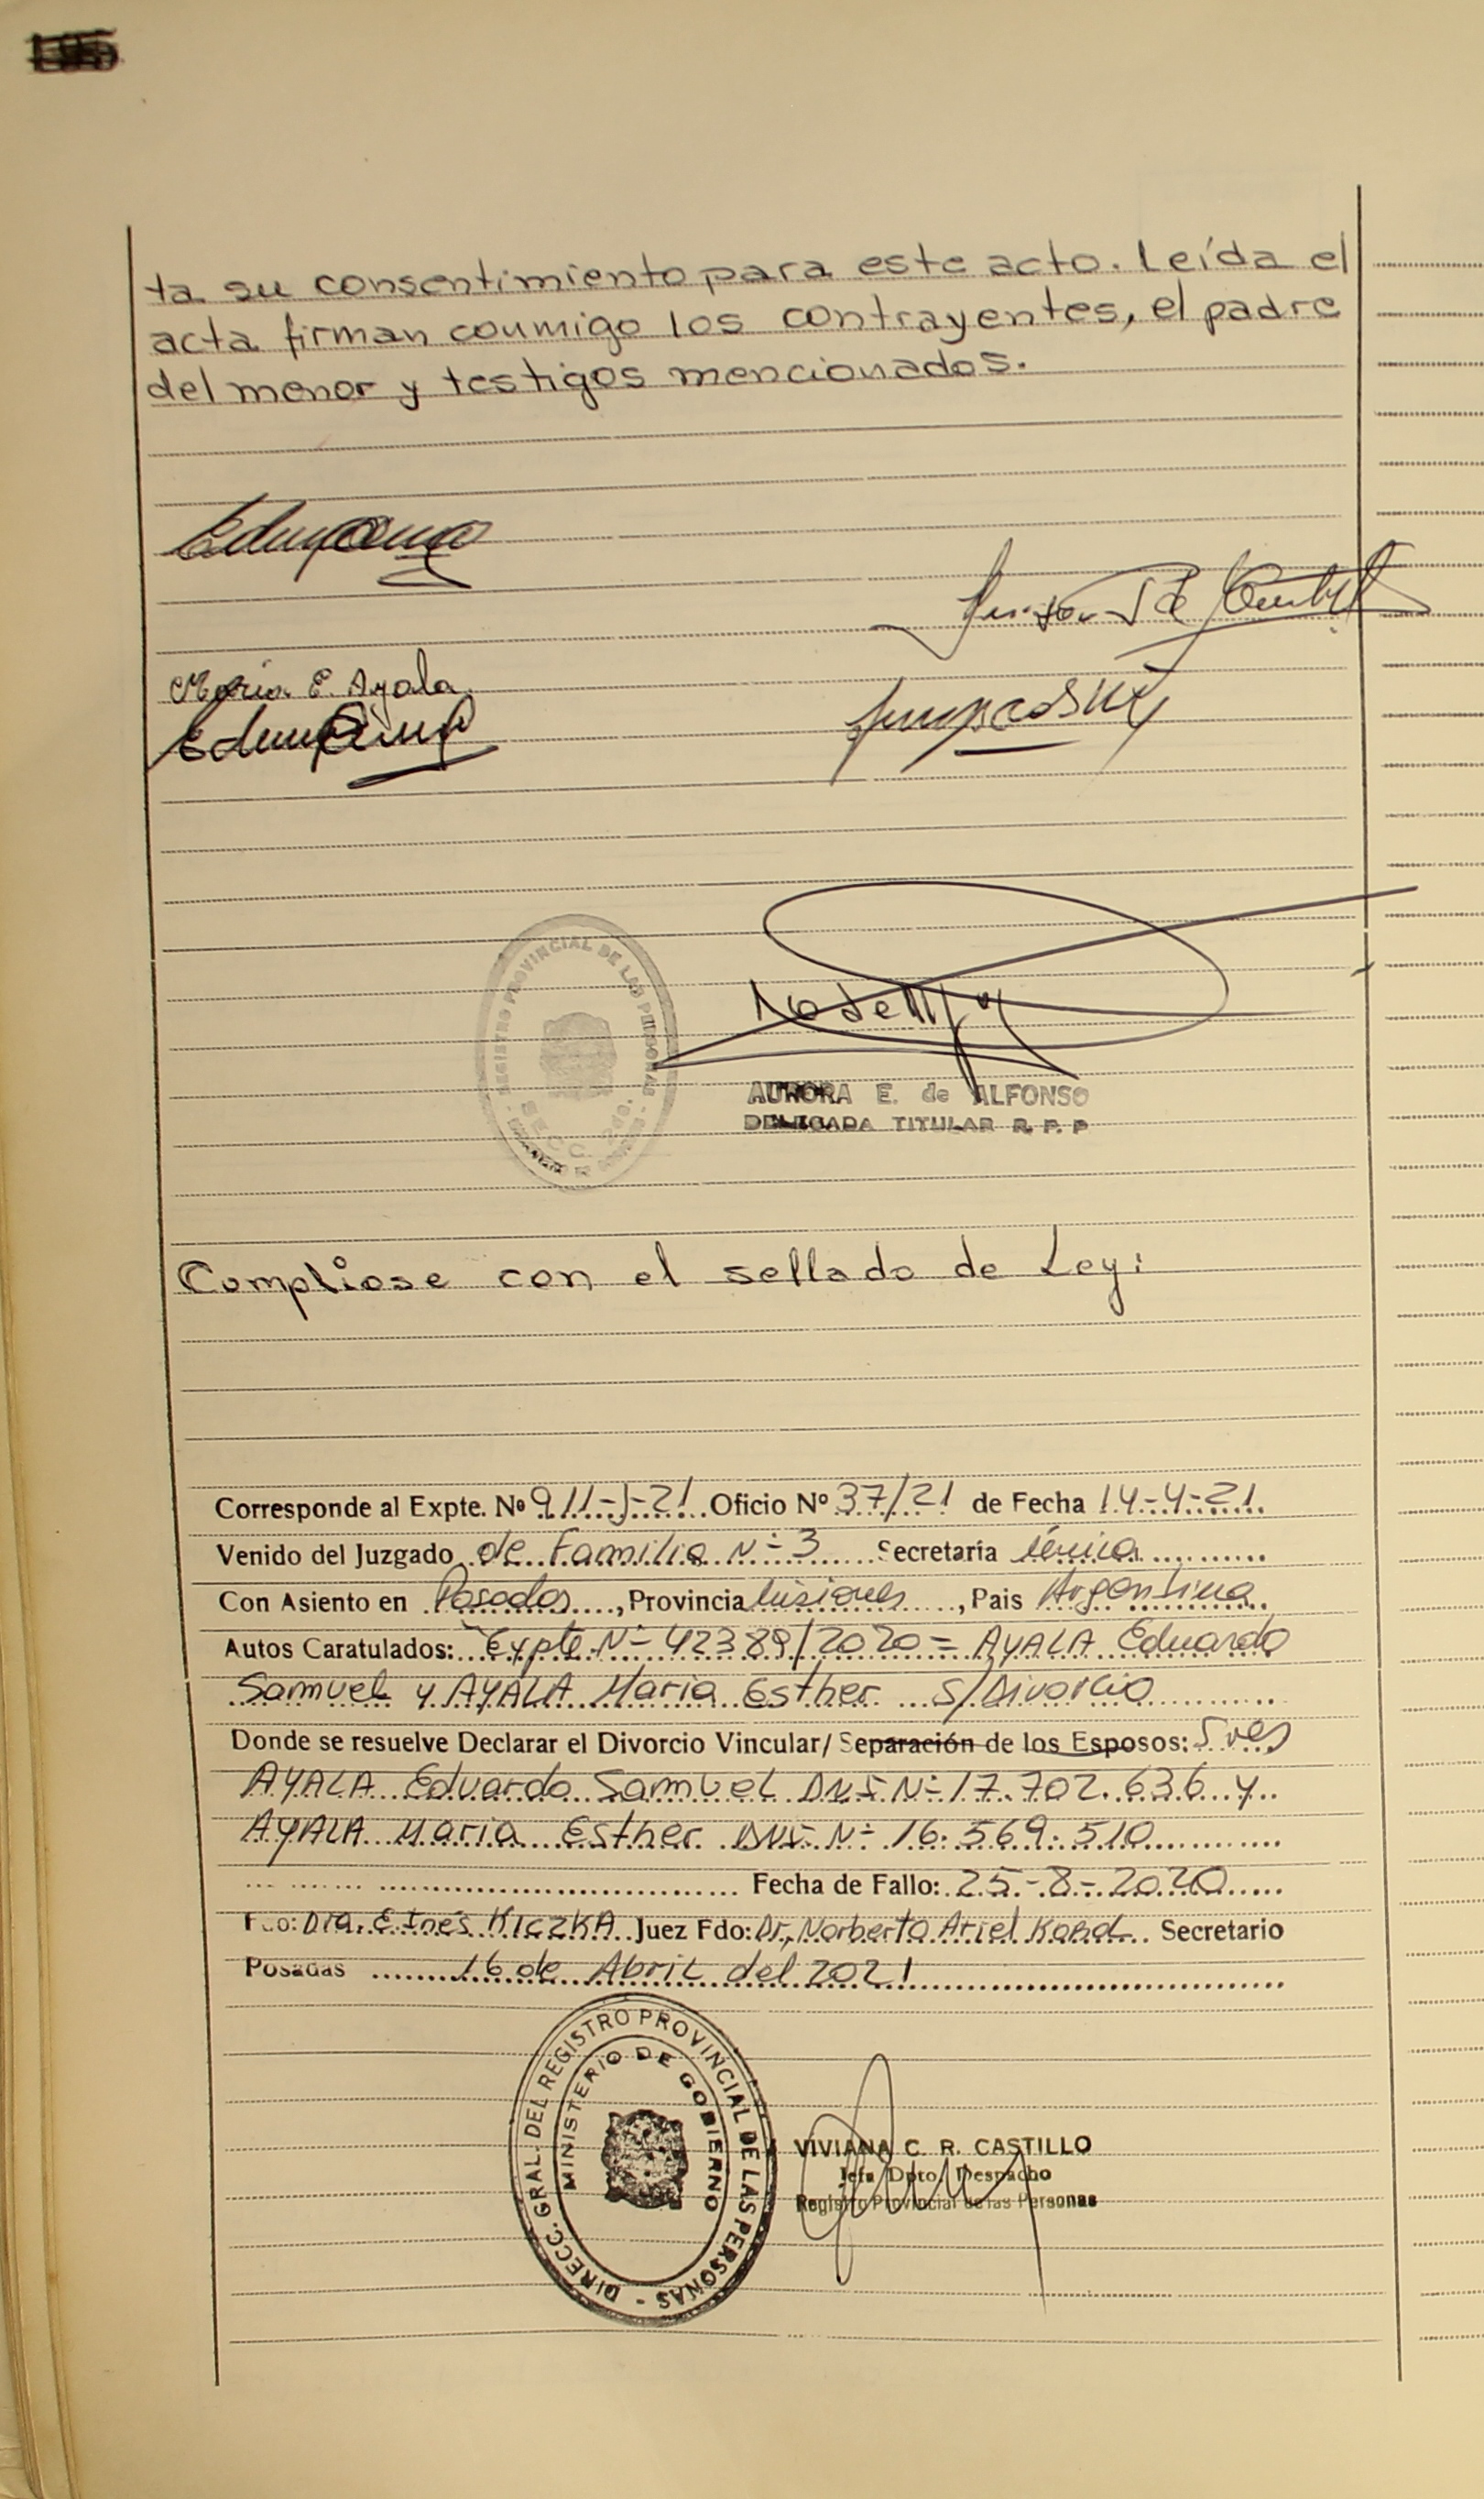 ta su consentimiento para este acto. Leída el
acta firman conmigo los contrayentes, el padre
del menor y testigos mencionados.
María E. Ayala
REGISTRO PROVINCIAL DE LAS PERSONAS
AURORA E. de ALFONSO
DELEGADA TITULAR R. P. P
Cumpliose con el sellado de Ley:
Corresponde al Expte. Nº 911-J-21 Oficio Nº 37/21 de Fecha 14-4-21
Venido del Juzgado de Familia Nº 3 Secretaría única
Con Asiento en Posadas, Provincia Misiones, Pais Argentina
Autos Caratulados: Expte Nº 42389/2020 = AYALA Eduardo
Samuel y AYALA Maria Esther S/Divorcio
Donde se resuelve Declarar el Divorcio Vincular/ Separación de los Esposos: Sres
AYALA Eduardo Samuel DNI Nº 17.702.636 y
AYALA Maria Esther DNI Nº 16.569.510
Fecha de Fallo: 25-8-2020
Fdo: Dra. E Inés KICZKA Juez Fdo: Dr, Norberto Ariel Secretario
Posadas 16 de Abril del 2021
DIRECC. GRAL. DEL REGISTRO PROVINCIAL DE LAS PERSONAS -
MINISTERIO DE GOBIERNO
VIVIANA C. R. CASTILLO
Jefa Dpto. Despacho
Registro Provincial de las Personas